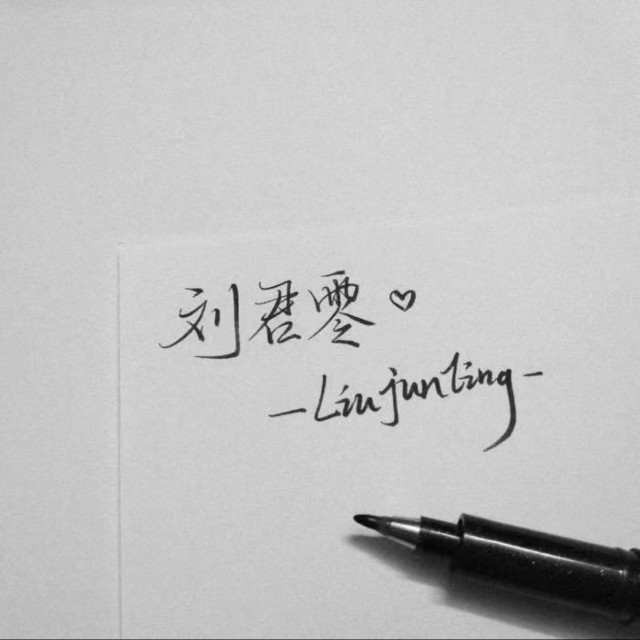 刘君零♡
-Liujunting-